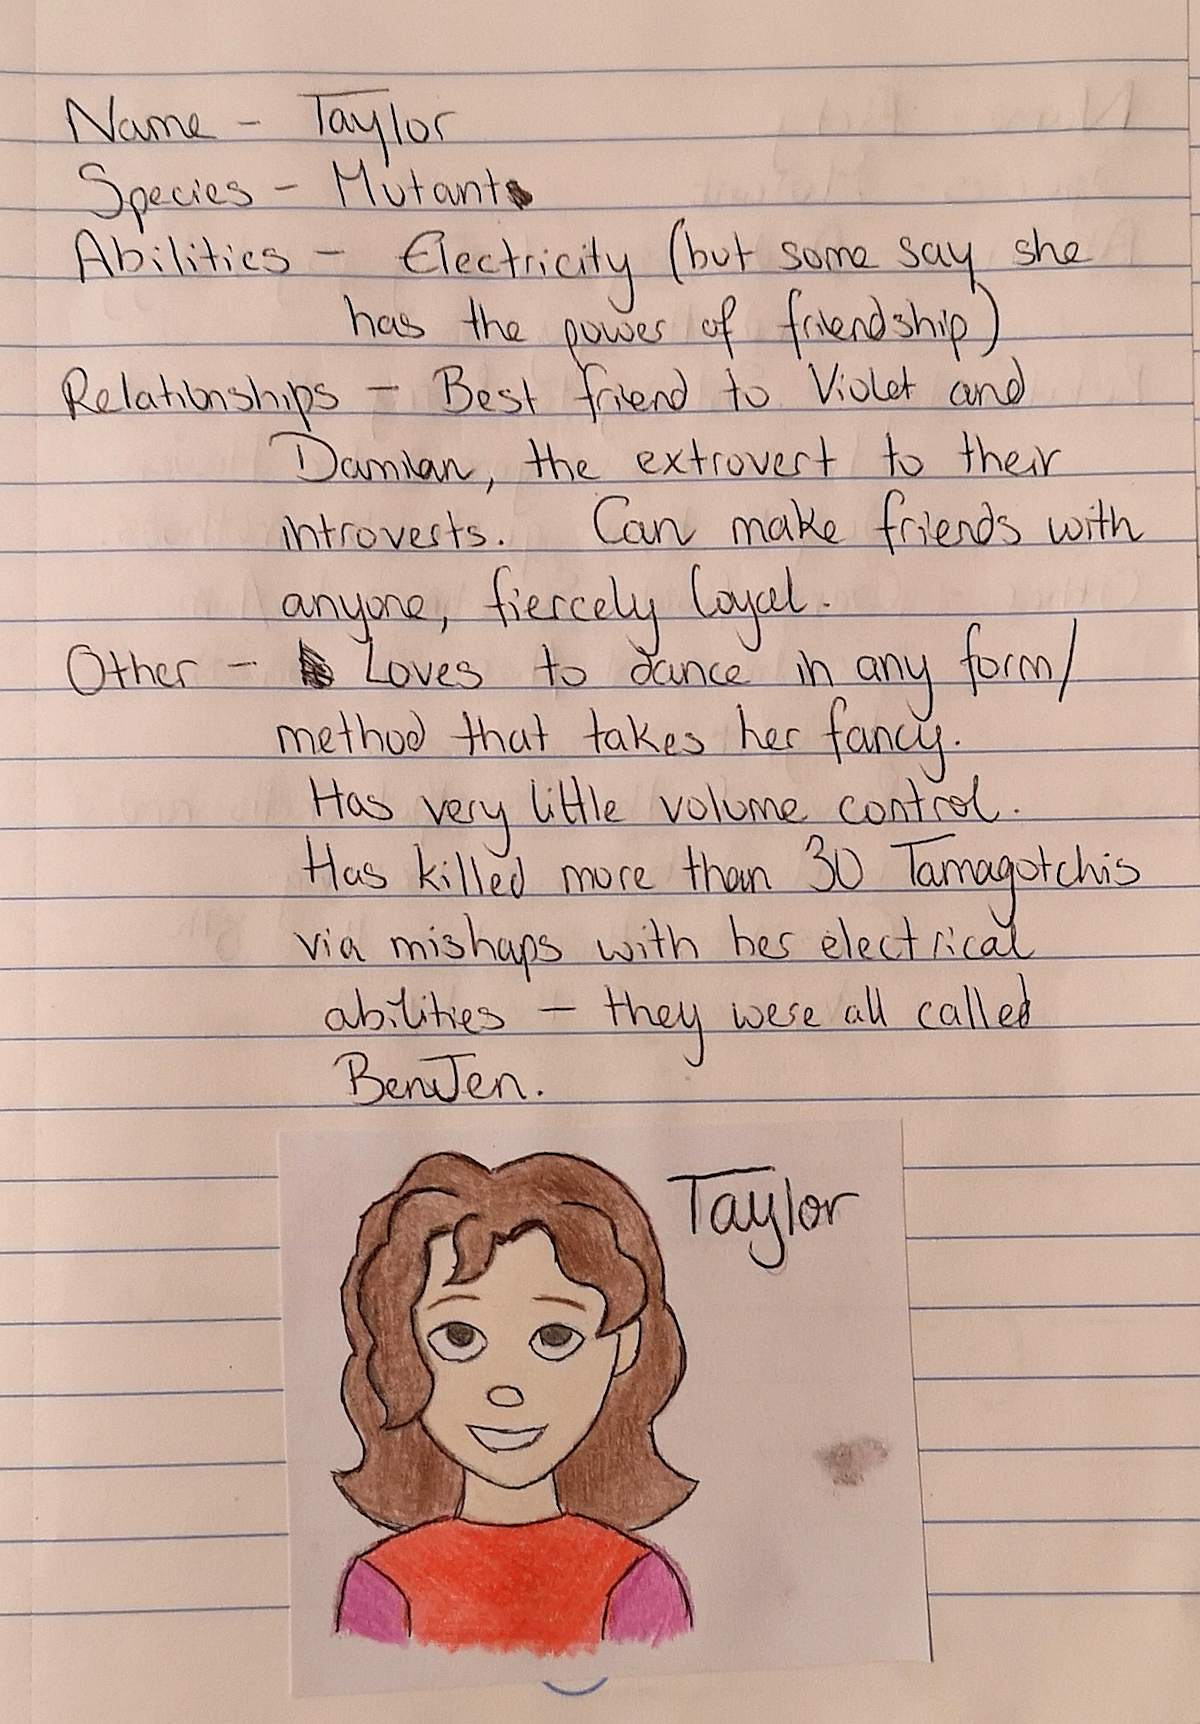 Name - Taylor
Species - Mutant
Abilities - Electricity (but some say she
has the power of friendship)
Relationships - Best friend to Violet and
Damian, the extrovert to their
introverts. Can make friends with
anyone, fiercely loyal.
Other - Loves to dance in any form/
method that takes her fancy.
Has very little volume control.
Has killed more than 30 Tamagotchis
via mishaps with her electrical
abilities - they were all called
BenJen.
Taylor